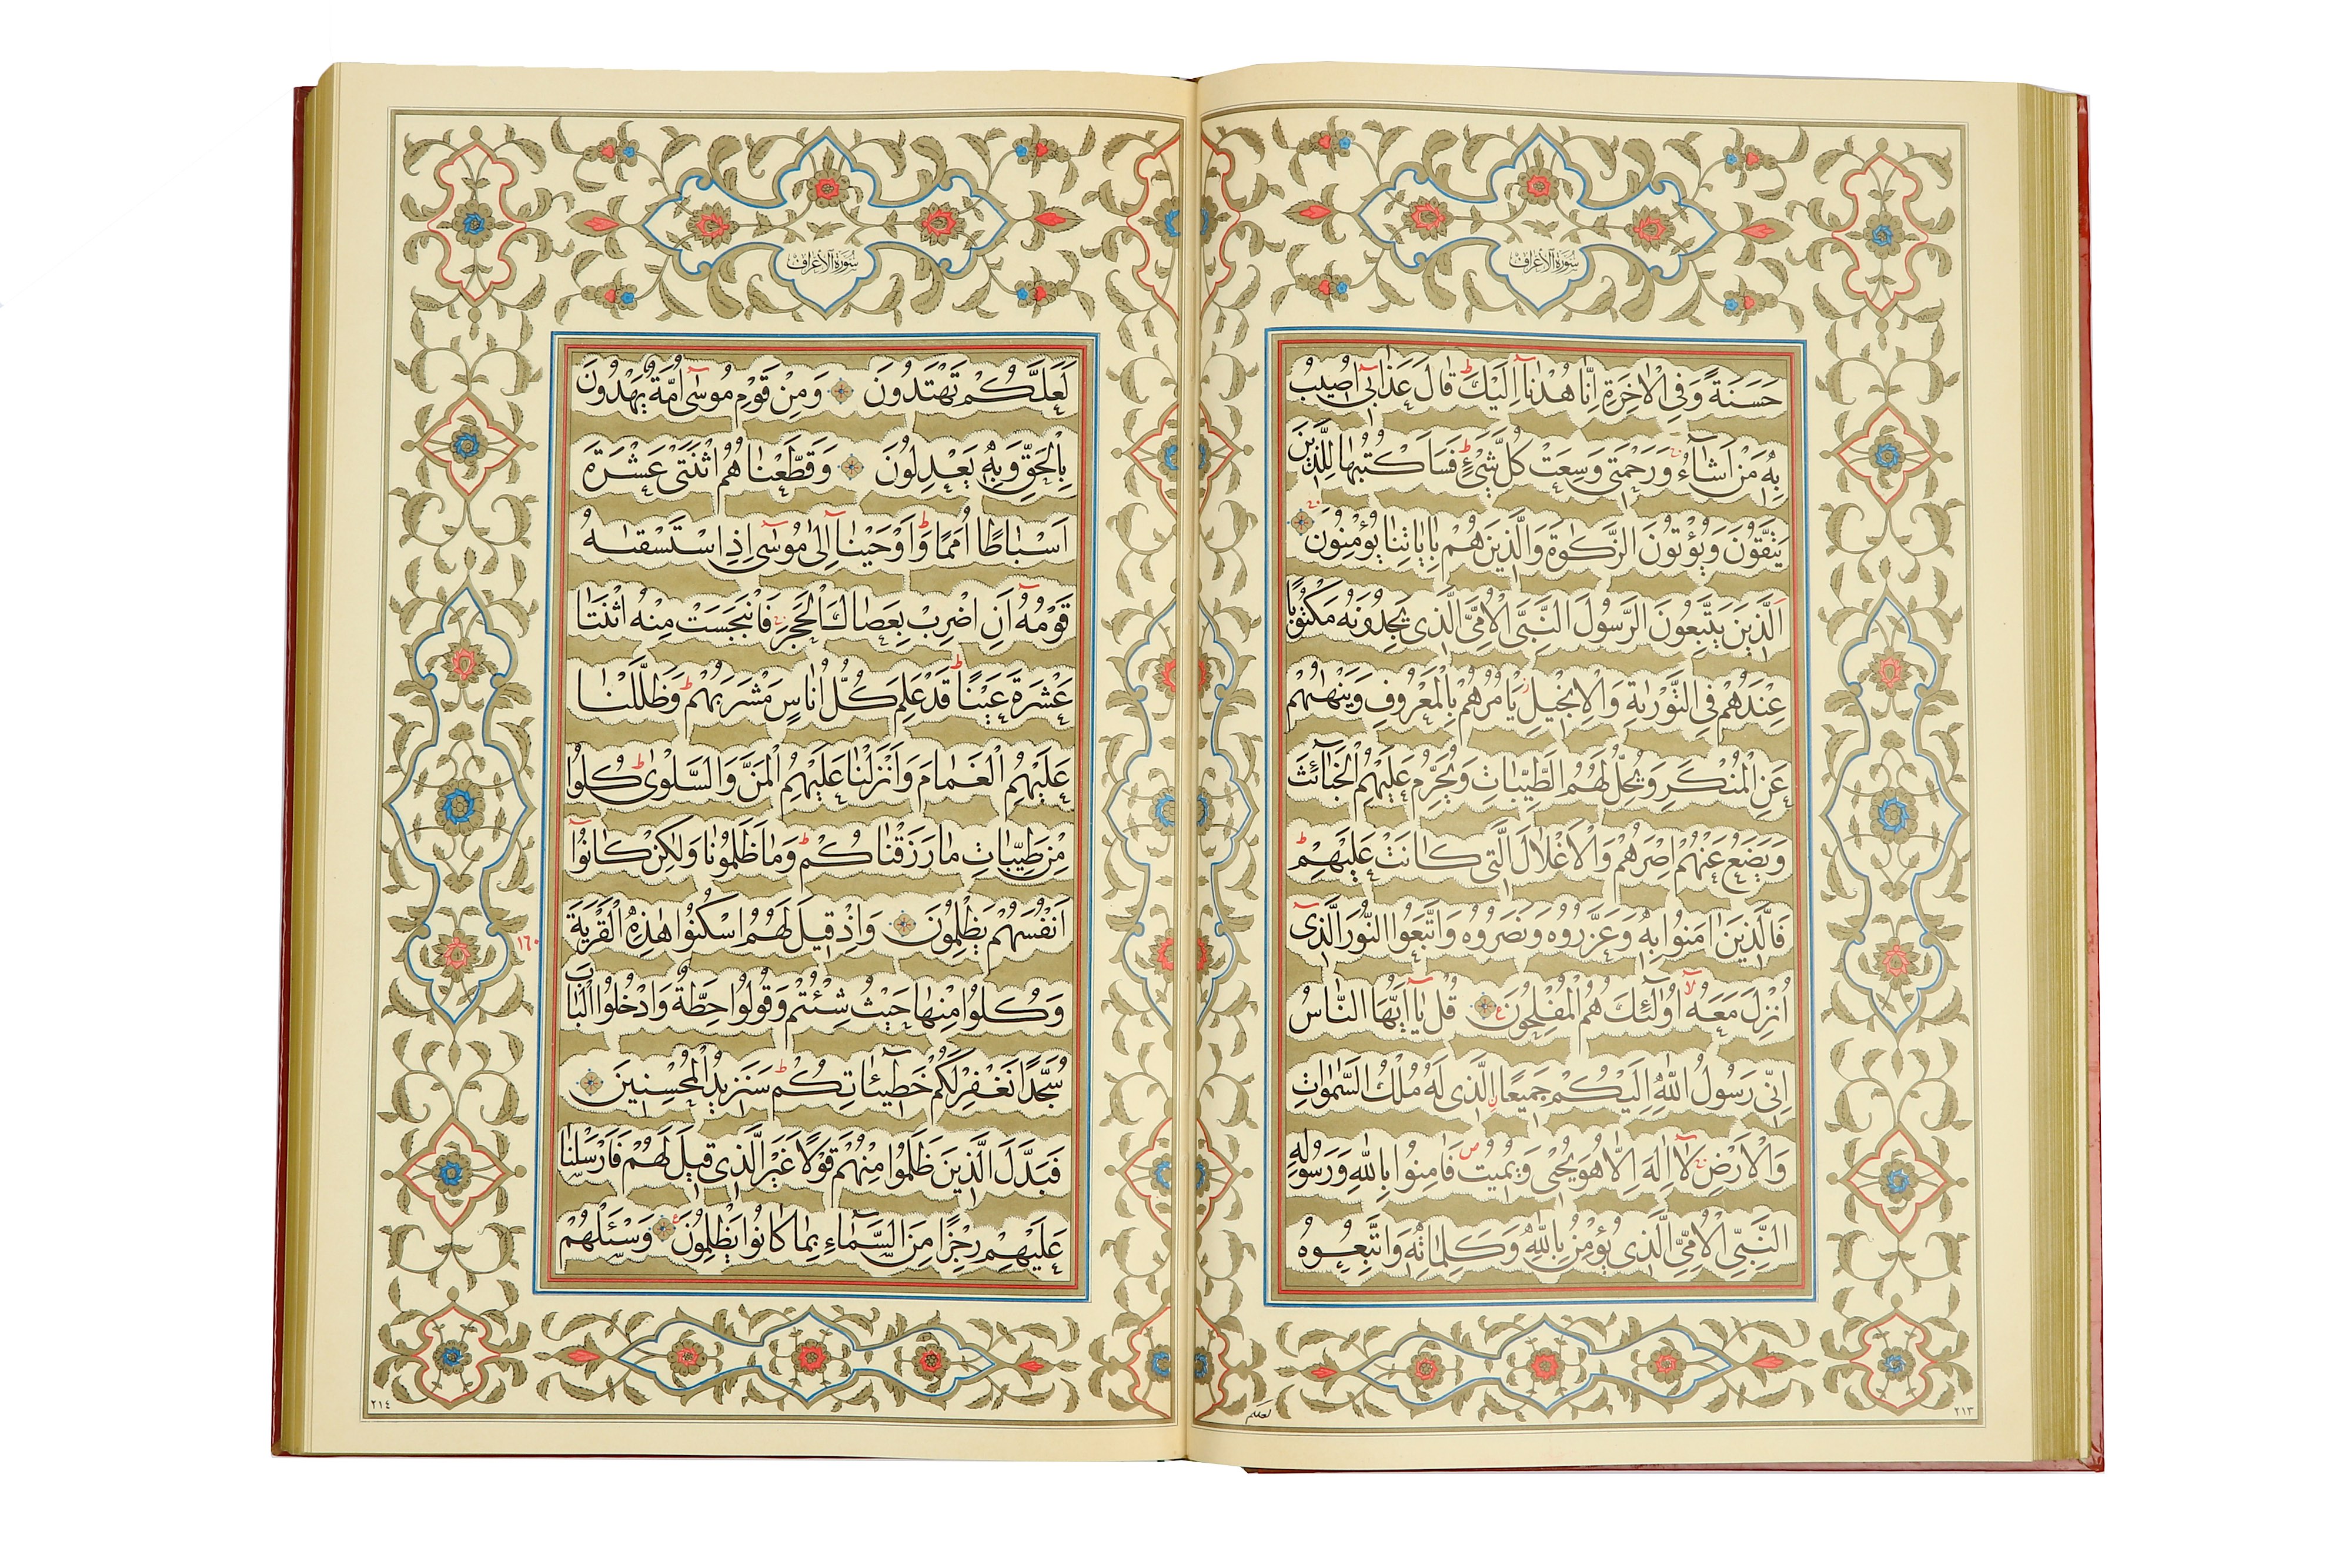 سُورَةُ الْاَعْرَافِ
حَسَنَةً وَفِي الْاٰخِرَةِ اِنَّا هُدْنَآ اِلَيْكَ ۜ قَالَ عَذَابٖٓى اُصٖيبُ
بِهٖ مَنْ اَشَآءُ ۚ وَرَحْمَتٖى وَسِعَتْ كُلَّ شَىْءٍ ۜ فَسَاَكْتُبُهَا لِلَّذٖينَ
يَتَّقُونَ وَيُؤْتُونَ الزَّكٰوةَ وَالَّذٖينَ هُمْ بِاٰيَاتِنَا يُؤْمِنُونَ ۚ
اَلَّذٖينَ يَتَّبِعُونَ الرَّسُولَ النَّبِىَّ الْاُمِّىَّ الَّذٖى يَجِدُونَهُ مَكْتُوبًا
عِنْدَهُمْ فِى التَّوْرٰيةِ وَالْاِنْجٖيلِ ۘ يَاْمُرُهُمْ بِالْمَعْرُوفِ وَيَنْهٰيهُمْ
عَنِ الْمُنْكَرِ وَيُحِلُّ لَهُمُ الطَّيِّبَاتِ وَيُحَرِّمُ عَلَيْهِمُ الْخَبَآئِثَ
وَيَضَعُ عَنْهُمْ اِصْرَهُمْ وَالْاَغْلَالَ الَّتٖى كَانَتْ عَلَيْهِمْ ۜ
فَالَّذٖينَ اٰمَنُوا بِهٖ وَعَزَّرُوهُ وَنَصَرُوهُ وَاتَّبَعُوا النُّورَ الَّذٖٓى
اُنْزِلَ مَعَهُٓ ۙ اُولٰٓئِكَ هُمُ الْمُفْلِحُونَ ۟ قُلْ يَآ اَيُّهَا النَّاسُ
اِنّٖى رَسُولُ اللّٰهِ اِلَيْكُمْ جَمٖيعًا الَّذٖى لَهُ مُلْكُ السَّمٰوَاتِ
وَالْاَرْضِ ۚ لَآ اِلٰهَ اِلَّا هُوَ يُحْيٖى وَيُمٖيتُ ۖ فَاٰمِنُوا بِاللّٰهِ وَرَسُولِهِ
النَّبِىِّ الْاُمِّىِّ الَّذٖى يُؤْمِنُ بِاللّٰهِ وَكَلِمَاتِهٖ وَاتَّبِعُوهُ
لعلكم
٢١٣
سُورَةُ الْاَعْرَافِ
لَعَلَّكُمْ تَهْتَدُونَ وَمِنْ قَوْمِ مُوسٰٓى اُمَّةٌ يَهْدُونَ
بِالْحَقِّ وَبِهٖ يَعْدِلُونَ وَقَطَّعْنَاهُمُ اثْنَتَىْ عَشْرَةَ
اَسْبَاطًا اُمَمًا ۜ وَاَوْحَيْنَآ اِلٰى مُوسٰٓى اِذِ اسْتَسْقٰيهُ
قَوْمُهُٓ اَنِ اضْرِبْ بِعَصَاكَ الْحَجَرَ ۚ فَانْبَجَسَتْ مِنْهُ اثْنَتَا
عَشْرَةَ عَيْنًا ۜ قَدْ عَلِمَ كُلُّ اُنَاسٍ مَشْرَبَهُمْ ۜ وَظَلَّلْنَا
عَلَيْهِمُ الْغَمَامَ وَاَنْزَلْنَا عَلَيْهِمُ الْمَنَّ وَالسَّلْوٰى ۜ كُلُوا
مِنْ طَيِّبَاتِ مَا رَزَقْنَاكُمْ ۜ وَمَا ظَلَمُونَا وَلٰكِنْ كَانُوٓا
اَنْفُسَهُمْ يَظْلِمُونَ وَاِذْ قٖيلَ لَهُمُ اسْكُنُوا هٰذِهِ الْقَرْيَةَ
١٦٠
وَكُلُوا مِنْهَا حَيْثُ شِئْتُمْ وَقُولُوا حِطَّةٌ وَادْخُلُوا الْبَابَ
سُجَّدًا نَغْفِرْ لَكُمْ خَطٖٓيـَٔاتِكُمْ ۜ سَنَزٖيدُ الْمُحْسِنٖينَ
فَبَدَّلَ الَّذٖينَ ظَلَمُوا مِنْهُمْ قَوْلًا غَيْرَ الَّذٖى قٖيلَ لَهُمْ فَاَرْسَلْنَا
عَلَيْهِمْ رِجْزًا مِنَ السَّمَآءِ بِمَا كَانُوا يَظْلِمُونَ ۟ وَسْـَٔلْهُمْ
٢١٤